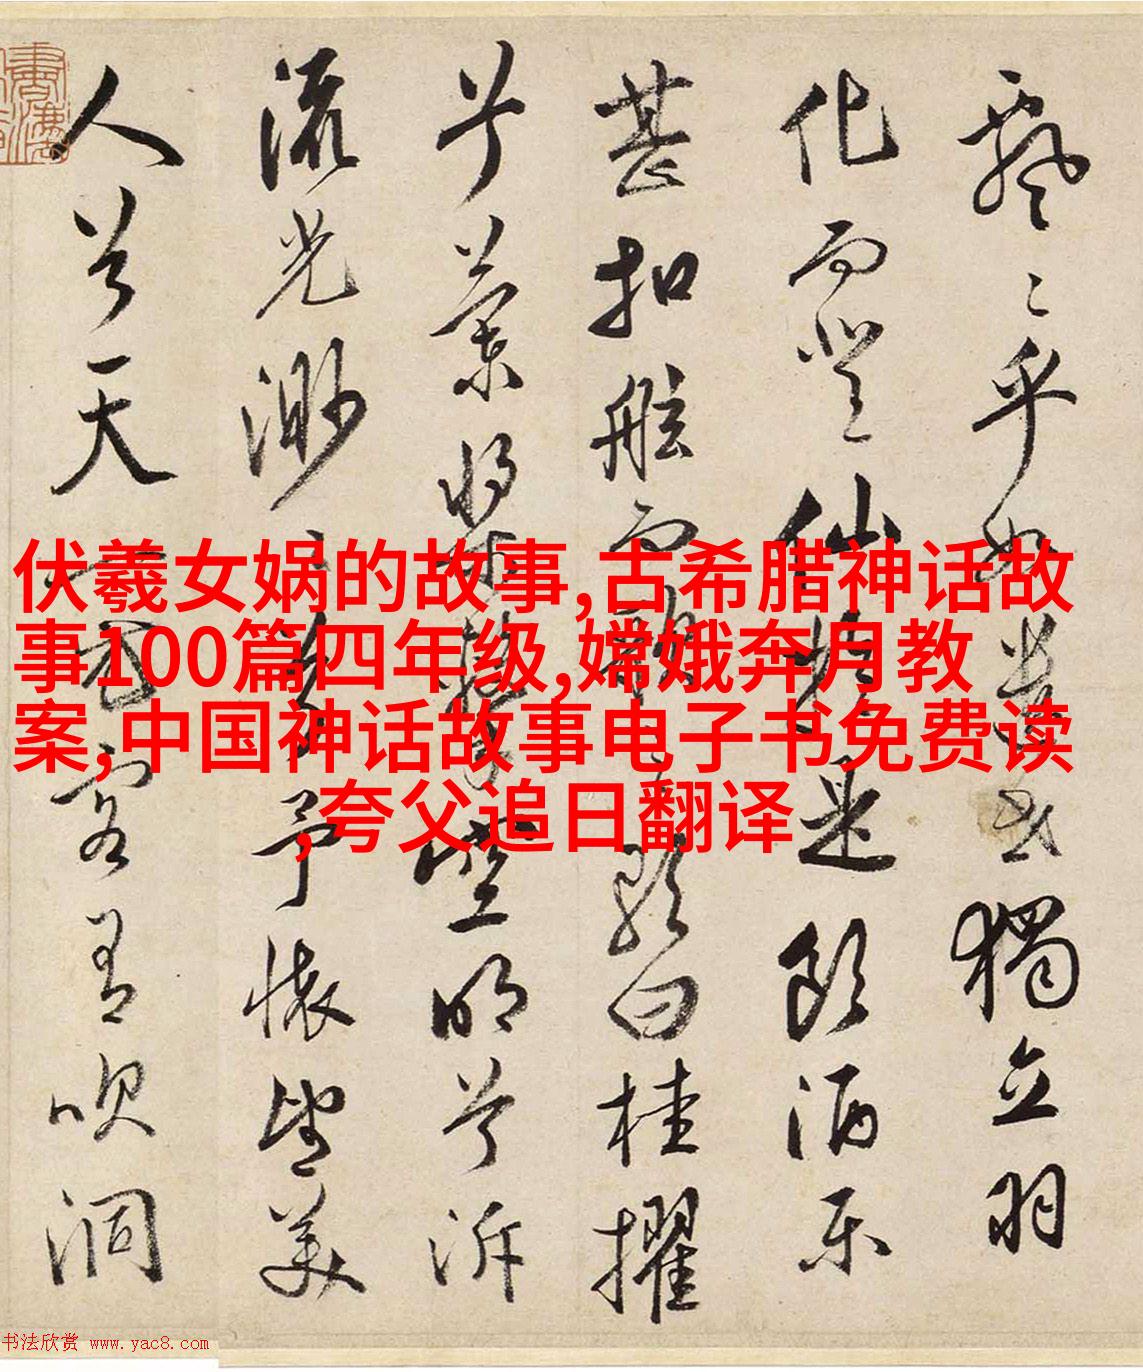 飄〻乎如遺世獨立羽
化而登仙於是飲酒樂
甚扣舷而歌之歌曰桂擢
兮蘭槳擊空明兮泝
流光渺〻兮予懷望美
人兮天一方客有吹洞
伏羲女娲的故事,古希腊神话故
事100篇四年级,嫦娥奔月教
案,中国神话故事电子书免费读
,夸父追日翻译
书法欣赏 www.yac8.com